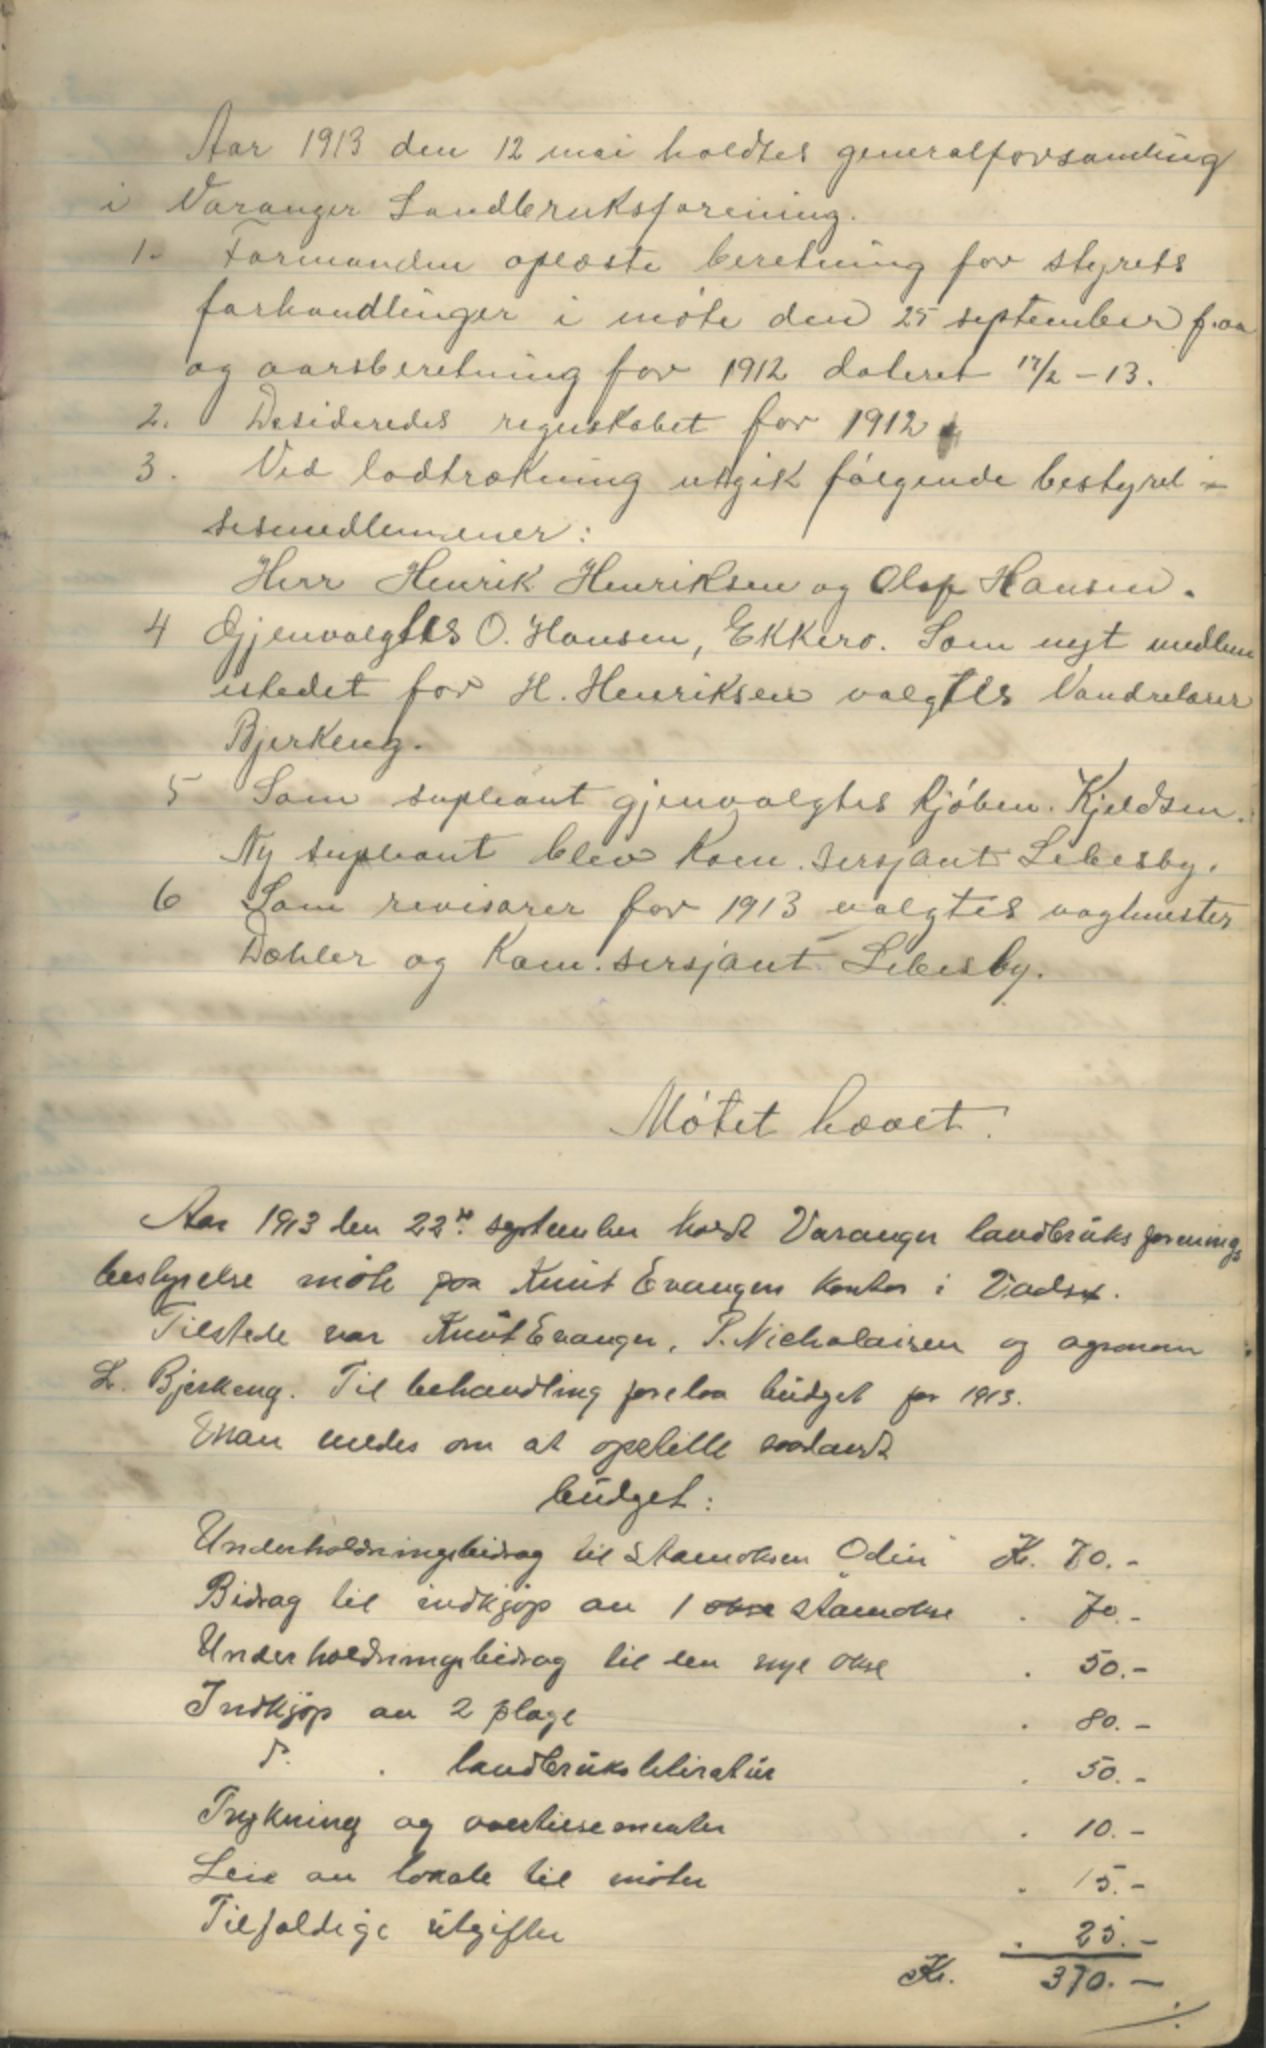 Aar 1913 den 12 mai holdtes generalforsamling
i Varanger Landbruksforening.
1. Formanden oplæste beretning for styrets
forhandlinger i møte den 25 september f.aa
og aarsberetning for 1912 dateret 17/2 - 13.
2. Desideredes regnskabet for 1912
3. Ved lodtrækning utgik følgende bestyrel-
sesmedlemmer:
Herr Henrik Henriksen og Olaf Hansen.
4 Gjenvalgtes O. Hansen, Ekkerø. Som nyt medlem
istedet for H. Henriksen valgtes Vandrelærer
Bjerkeng.
5 Som supleant gjenvalgtes Kjøbm. Kjeldsen.
Ny supleant blev Kom. sersjant Lebesby.
6 Som revisorer for 1913 valgtes vagtmester
Dæhler og Kom. sersjant Lebesby.
Møtet hævet.
Aar 1913 den 22de september holdt Varanger landbruksforenings
bestyrelse møte paa Knut Evangers kontor i Vadsø.
Tilstede var Knut Evanger, P. Nicholaisen og agronom
L. Bjerkeng. Til behandling forelaa budget for 1913.
Man enedes om at opstille saadant
budget:
Underholdningsbidrag til stamoksen "Odin" Kr. 70.-
Bidrag til indkjøp av 1 okse stamokse . 70.-
Underholdningsbidrag til den nye okse . 50.-
Indkjøp av 2 ploge . 80.-
d. . landbruksliteratur . 50.-
Trykning og avertissementer . 10.-
Leie av lokale til møter . 15.-
Tilfældige utgifter . 25.-
Kr. 370.-